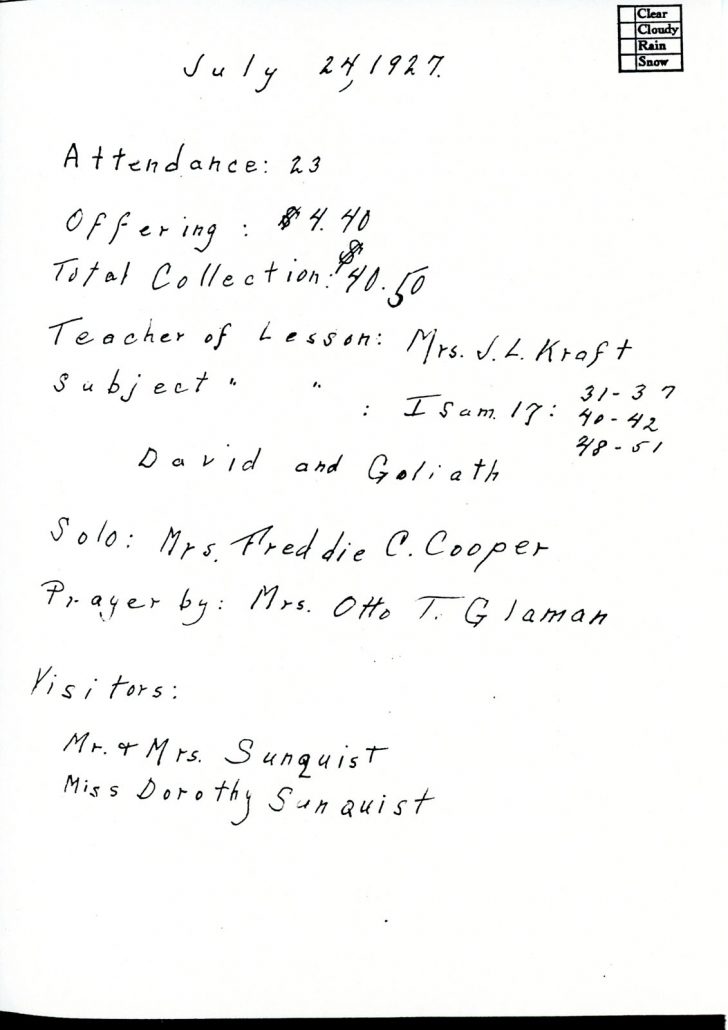 Clear
Cloudy
Rain
Snow
July 24, 1927.
Attendance: 23
Offering: $4.40
Total Collection: $40.50
Teacher of Lesson: Mrs. J. L. Kraft
Subject " " : I Sam. 17: 31-37
40-42
48-51
David and Goliath
Solo: Mrs. Freddie C. Cooper
Prayer by: Mrs. Otto T. Glaman
Visitors:
Mr. & Mrs. Sunquist
Miss Dorothy Sunquist